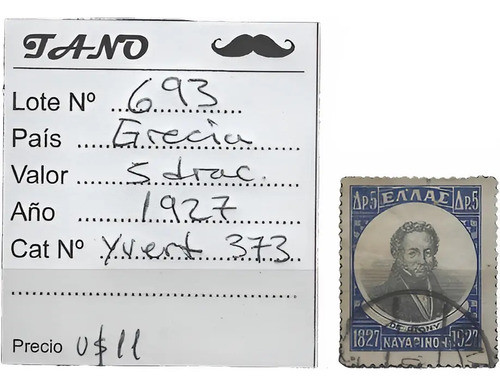 TANO
Lote Nº 693
País Grecia
Valor 5 drac.
Año 1927
Cat Nº Yvert 373
Precio U$11
ΔΡ.5 ΕΛΛΑΣ ΔΡ.5
1827 ΝΑΥΑΡΙΝΟΝ 1927